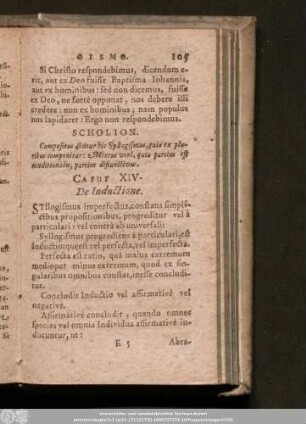 GISMO. 105
Si Christo respondebimus, dicendum e-
rit, aut ex Deo fuisse Baptisma Iohannis,
aut ex hominibus: sed non dicemus, fuisse
ex Deo, ne fortè opponat, nos debere illi
credere: non ex hominibus; nam populus
nos lapidaret: Ergo non respondebimus.
SCHOLION.
Compositus dicitur hic Syllogismus, quia ex plu-
ribus componitur: Mixtus verò, quia partim est
conditionalis, partim disjunctivus.
CAPUT XIV.
De Inductione.
SYllogismus Imperfectus, constans simpli-
cibus propositionibus, progreditur vel à
particulari: vel contrà ab universali:
Syllogismus progrediens à particulari, est
Inductio: quæ est vel perfecta, vel imperfecta.
Perfecta est ratio, quâ majus extremum
medio per minus extremum, quod ex sin-
gularibus omnibus constat, inesse concludi-
tur.
Concludit Inductio vel affirmativè vel
negativè.
Affirmativè concludit, quando omnes
species vel omnia Individua affirmativè in-
ducuntur, ut:
E 5 Abra-